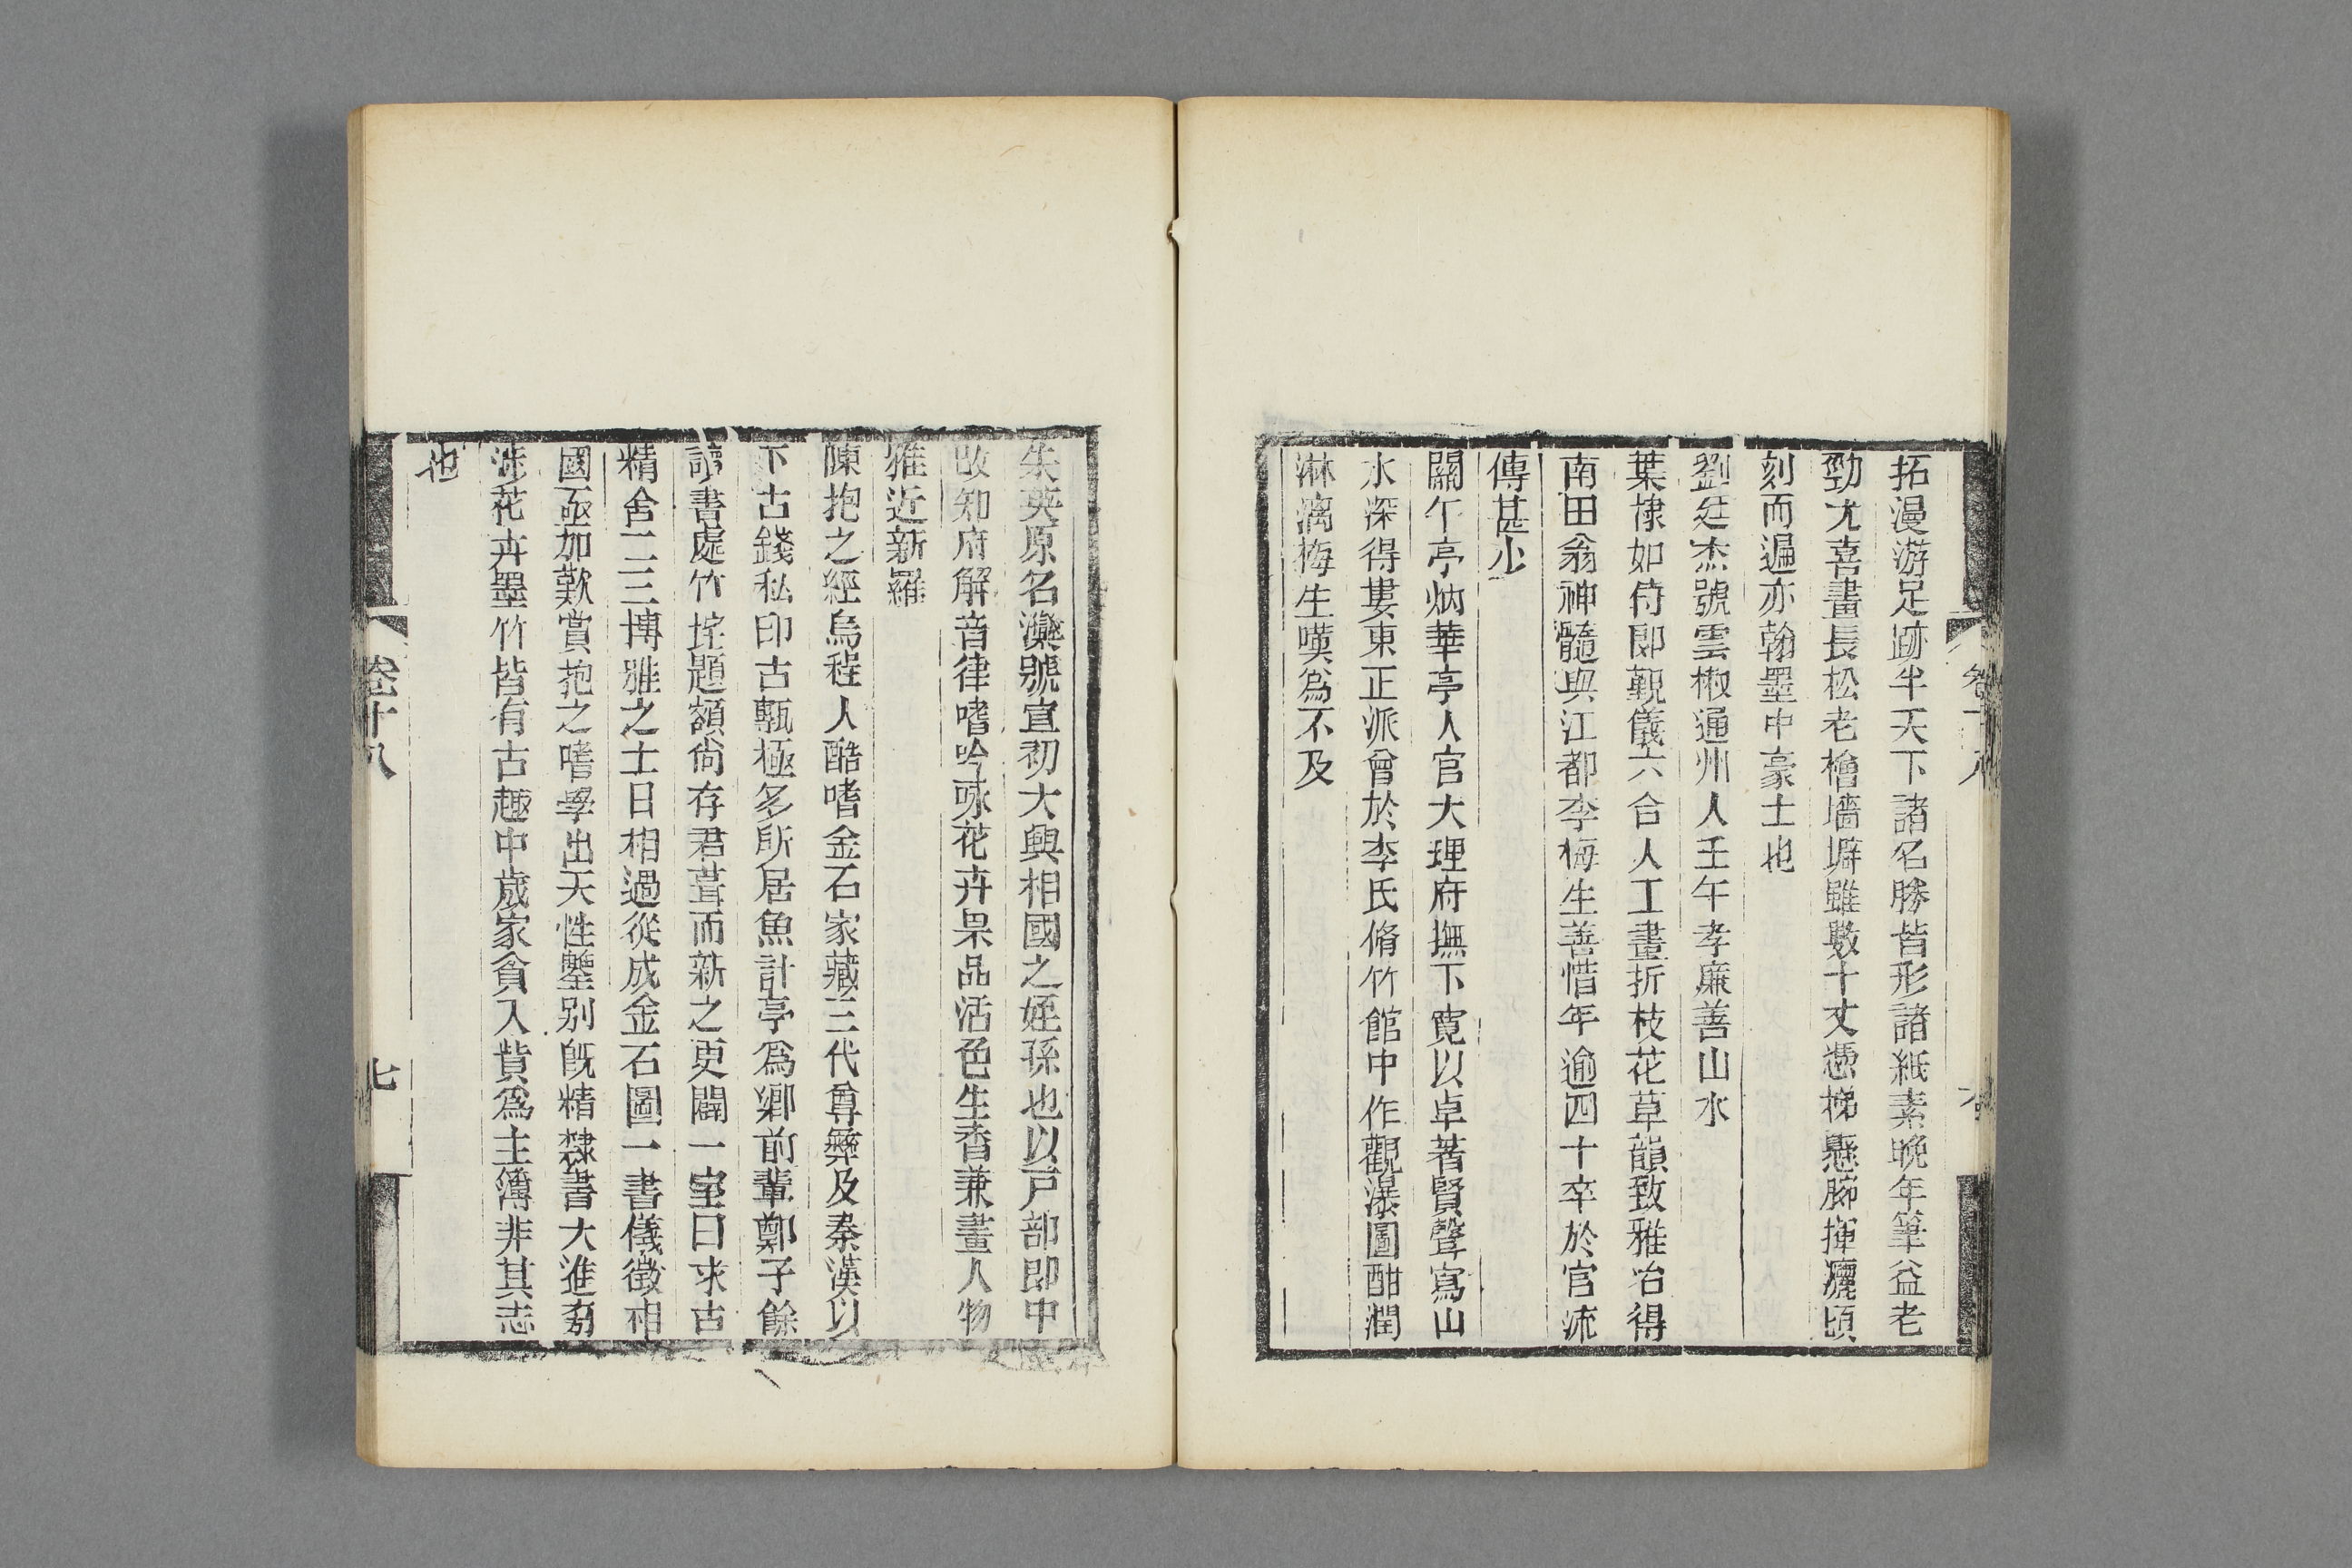 拓漫游足跡半天下諸名勝皆形諸紙素晚年筆益老
勁尤喜畫長松老檜墻壁雖數十丈憑梯懸腕揮灑頃
刻而遍亦翰墨中豪士也
劉廷杰號雲椒通州人壬午孝廉善山水
葉棣如侍郎觀儀六合人工畫折枝花草韻致雅冶得
南田翁神髓與江都李梅生善惜年逾四十卒於官流
傳甚少
關午亭炳華亭人官大理府撫下寬以卓著賢聲寫山
水深得婁東正派曾於李氏脩竹館中作觀瀑圖酣潤
淋漓梅生嘆為不及
卷十八
朱英原名灤號宣初大興相國之姪孫也以戶部郎中
改知府解音律嗜吟咏花卉果品活色生香兼畫人物
雅近新羅
陳抱之經烏程人酷嗜金石家藏三代尊彝及秦漢以
下古錢私印古甎極多所居魚計亭為鄉前輩鄭子餘
讀書處竹垞題額尚存君葺而新之更闢一室曰求古
精舍二三博雅之士日相過從成金石圖一書儀徵相
國亟加歎賞抱之嗜學出天性鑒別旣精隸書大進旁
涉花卉墨竹皆有古趣中歲家貧入貲為主簿非其志
也
卷十八
七